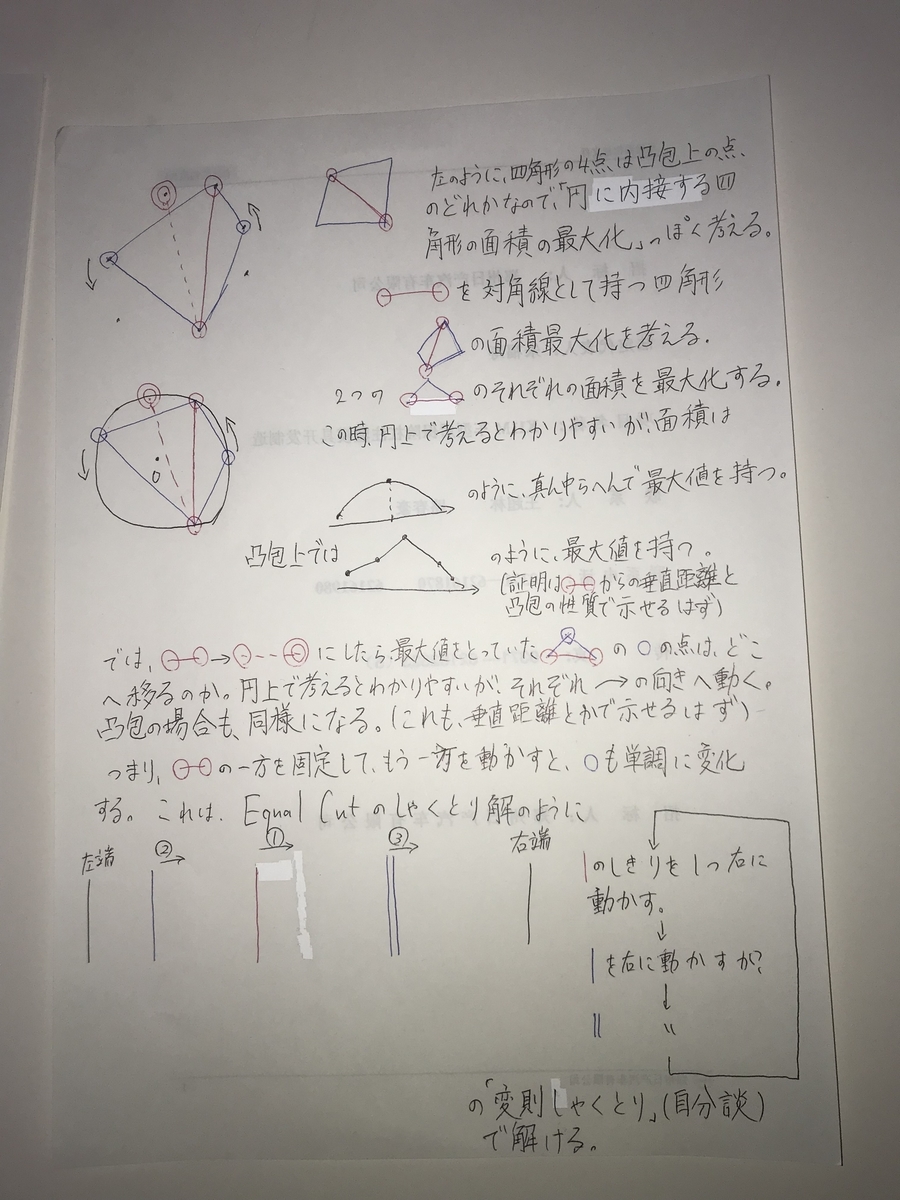 左のように、四角形の4点は凸包上の点、
のどれかなので、「円に内接する四
角形の面積の最大化」っぽく考える。
を対角線として持つ四角形
の面積最大化を考える.
2つの のそれぞれの面積を最大化する.
この時、円上で考えるとわかりやすいが、面積は
のように、真ん中らへんで最大値を持つ。
凸包上では のように、最大値を持つ。
(証明は からの垂直距離と
凸包の性質で示せるはず)
では, → にしたら、最大値をとっていた の ○の点は、どこ
へ移るのか。円上で考えるとわかりやすいが、それぞれ → の向きへ動く。
凸包の場合も、同様になる。(これも、垂直距離とかで示せるはず)
つまり, の一方を固定して、もう一方を動かすと、○も単調に変化
する。これは、Equal Cut のしゃくとり解のように
左端 ② ① ③ 右端
|のしきりを1つ右に
動かす。
↓
| を右に動かすか?
↓
|| 〃
の「変則しゃくとり」(自分談)
で解ける。